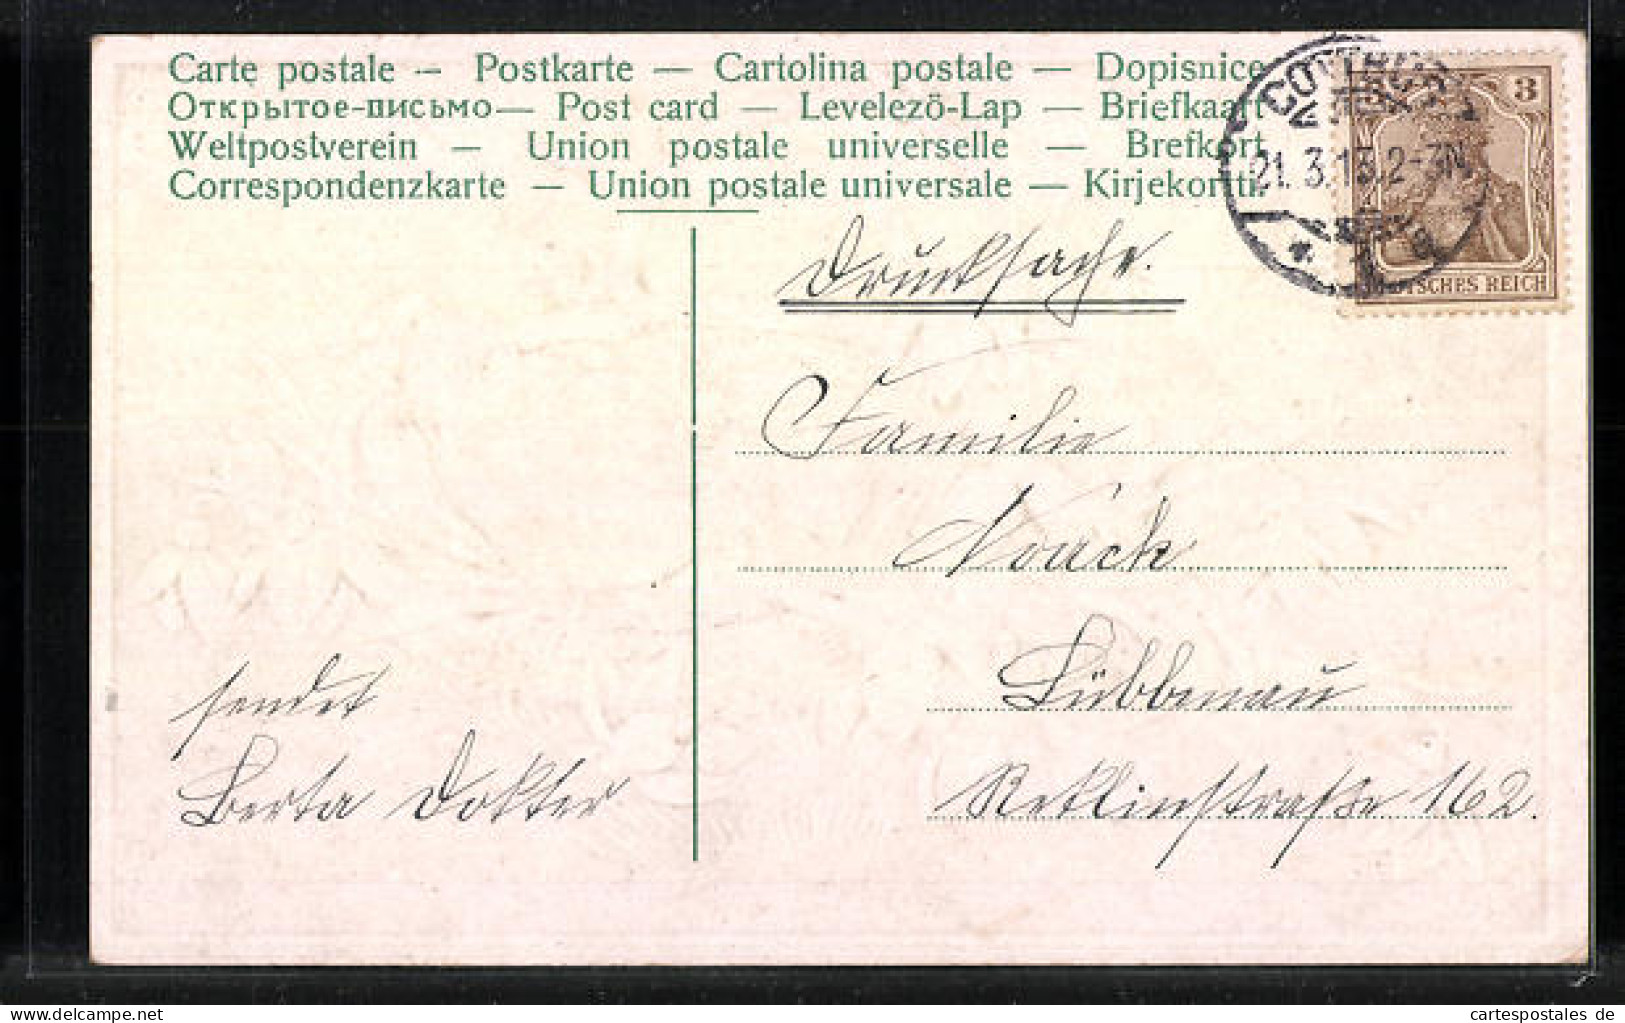 Carte postale — Postkarte — Cartolina postale — Dopisnice
Открытое-письмо — Post card — Levelezö-Lap — Briefkaart
Weltpostverein — Union postale universelle — Brefkort
Correspondenzkarte — Union postale universale — Kirjekortti.
COTTBUS
21. 3. 13. 2-3N
3
DEUTSCHES REICH
Drucksache.
Familie
Noack
Lübbenau
162.
sendet
Berta Dokter
delcampe.net
cartespostales de